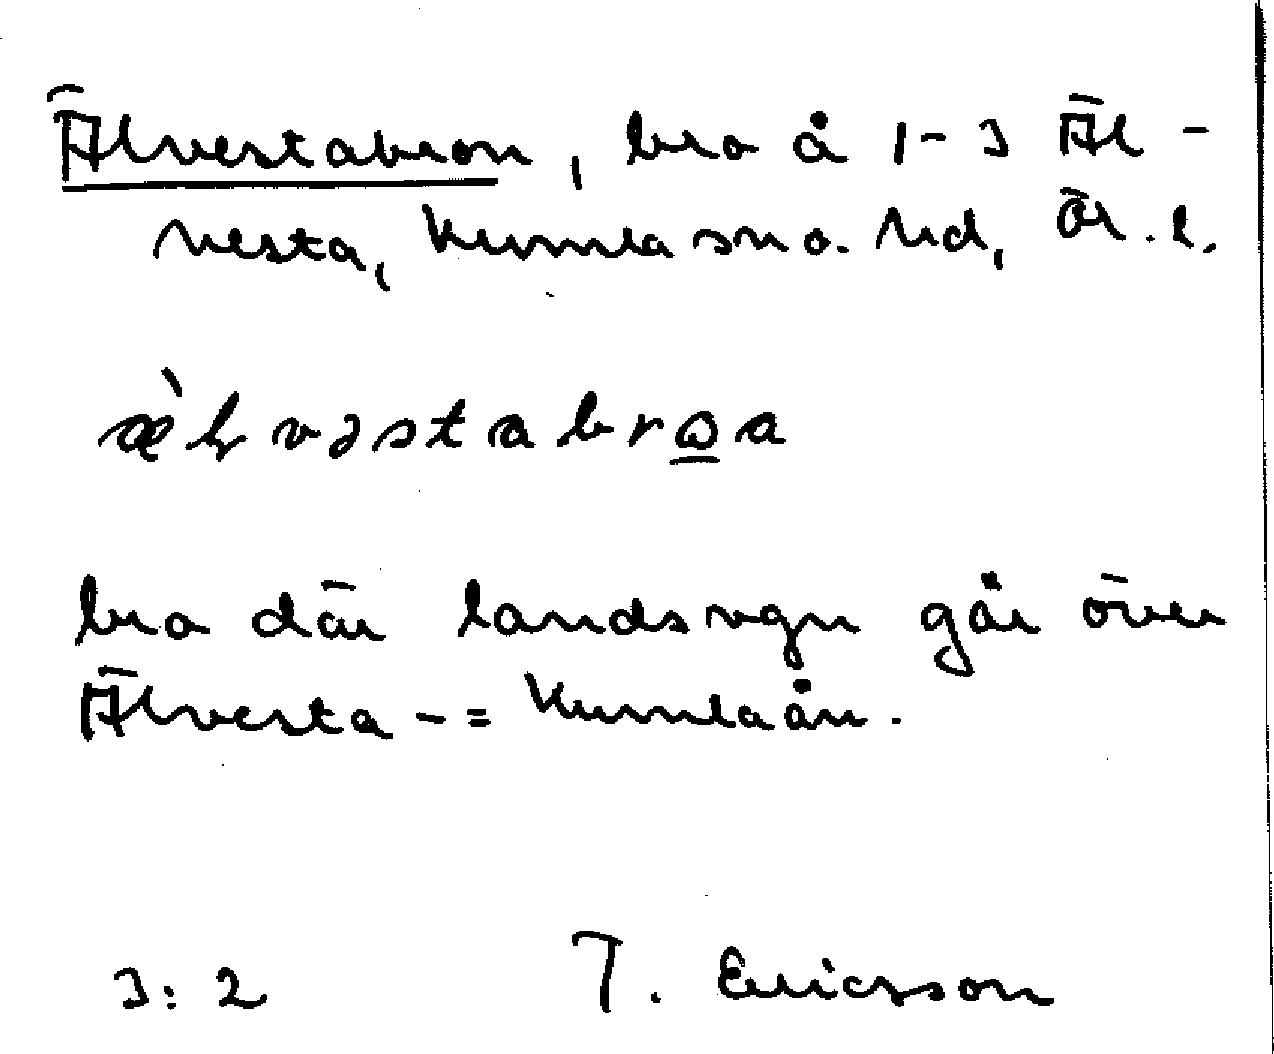 Älvestabron, bro å 1-3 Äl-
vesta, Kumla sn o. hd, Ör. l.
æ̀lvəstabrωa
bro där landsvgn går över
Älvesta- = Kumlaån.
3:2 T. Ericsson